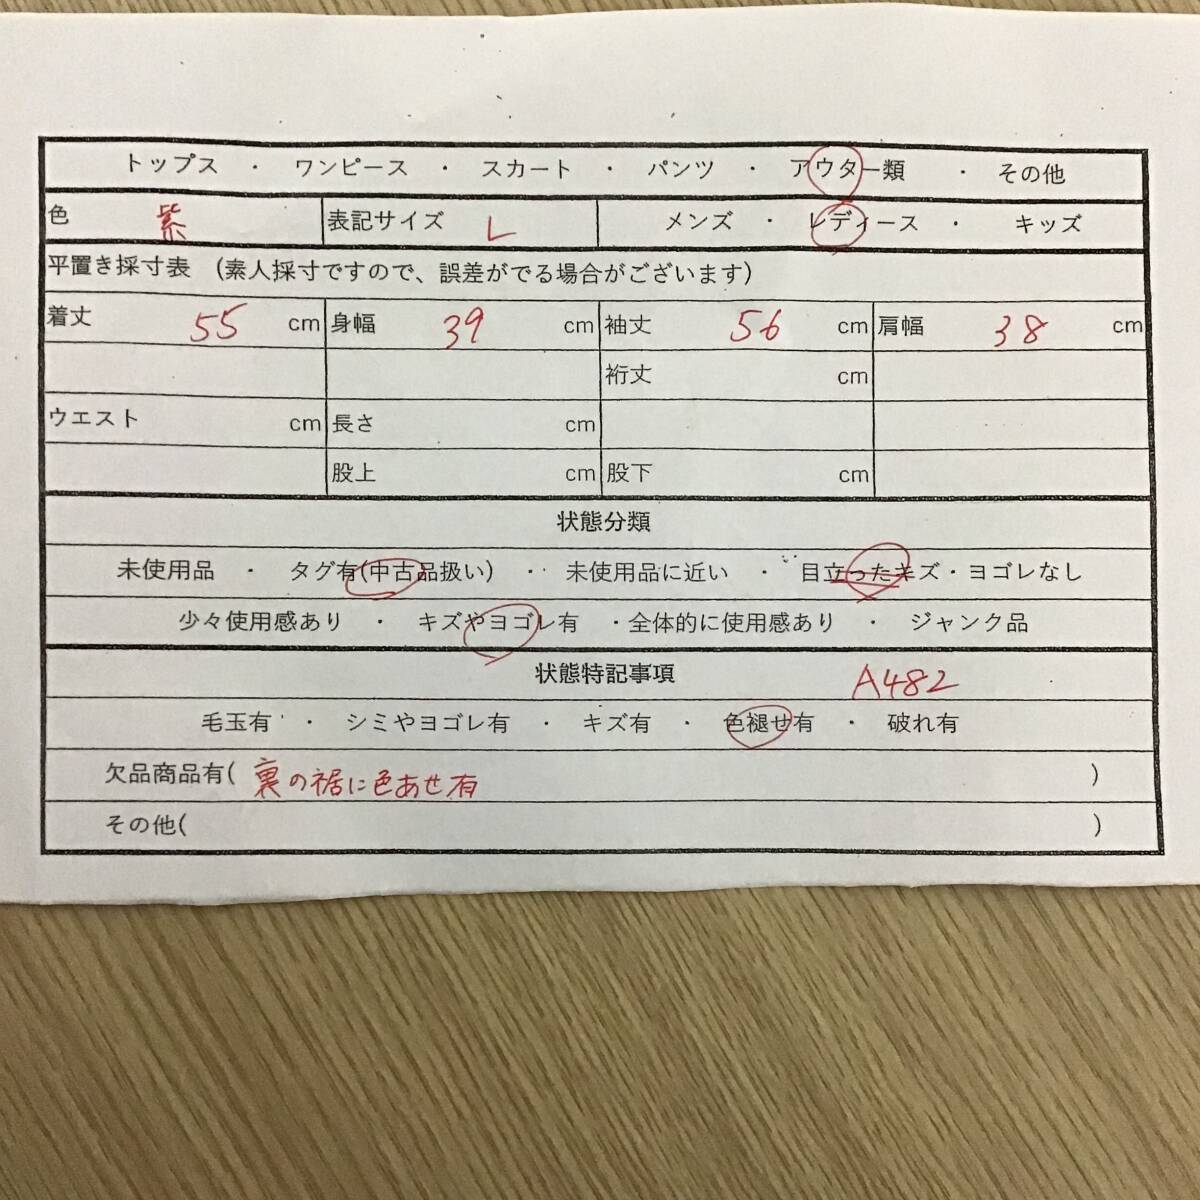 トップス ・ ワンピース ・ スカート ・ パンツ ・ アウター類 ・ その他
色 紫 表記サイズ L メンズ ・ レディース ・ キッズ
平置き採寸表 (素人採寸ですので、誤差がでる場合がございます)
着丈 55 cm 身幅 39 cm 袖丈 56 cm 肩幅 38 cm
裄丈 cm
ウエスト cm 長さ cm
股上 cm 股下 cm
状態分類
未使用品 ・ タグ有(中古品扱い) ・ 未使用品に近い ・ 目立ったキズ・ヨゴレなし
少々使用感あり ・ キズやヨゴレ有 ・全体的に使用感あり ・ ジャンク品
状態特記事項 A482
毛玉有 ・ シミやヨゴレ有 ・ キズ有 ・ 色褪せ有 ・ 破れ有
欠品商品有( 裏の裾に色あせ有 )
その他( )